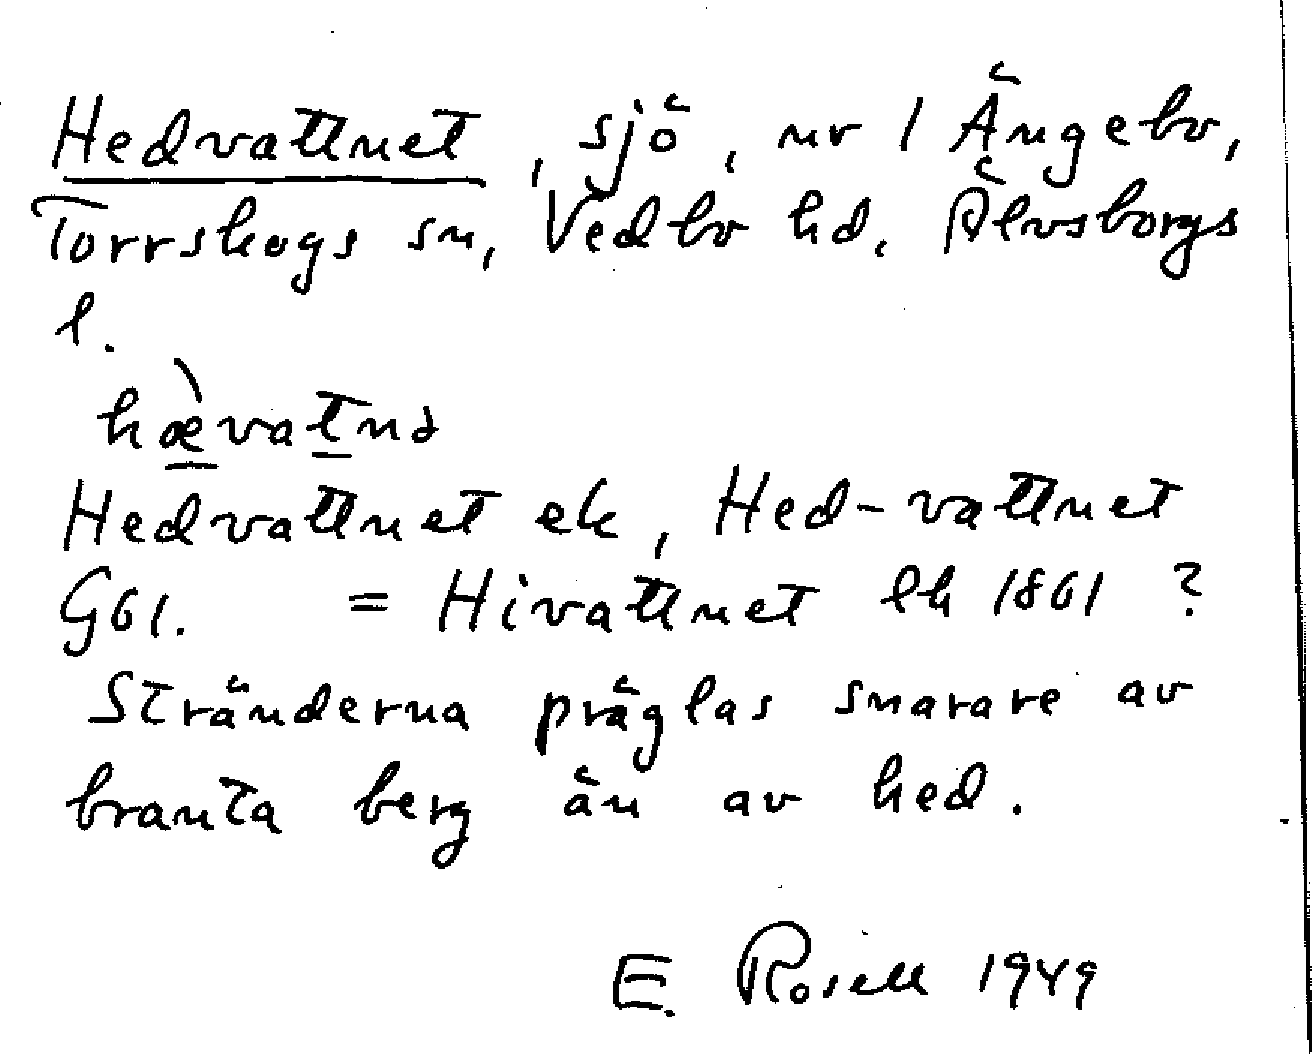 Hedvattnet, sjö, nr 1 Ängebo,
Torrskogs sn, Vedbo hd, Älvsborgs
l.
hæ̀vatnə
Hedvattnet ek, Hed-vattnet
G61. = Hivattnet lk 1861 ?
Stränderna präglas snarare av
branta berg än av hed.
E. Rosell 1949